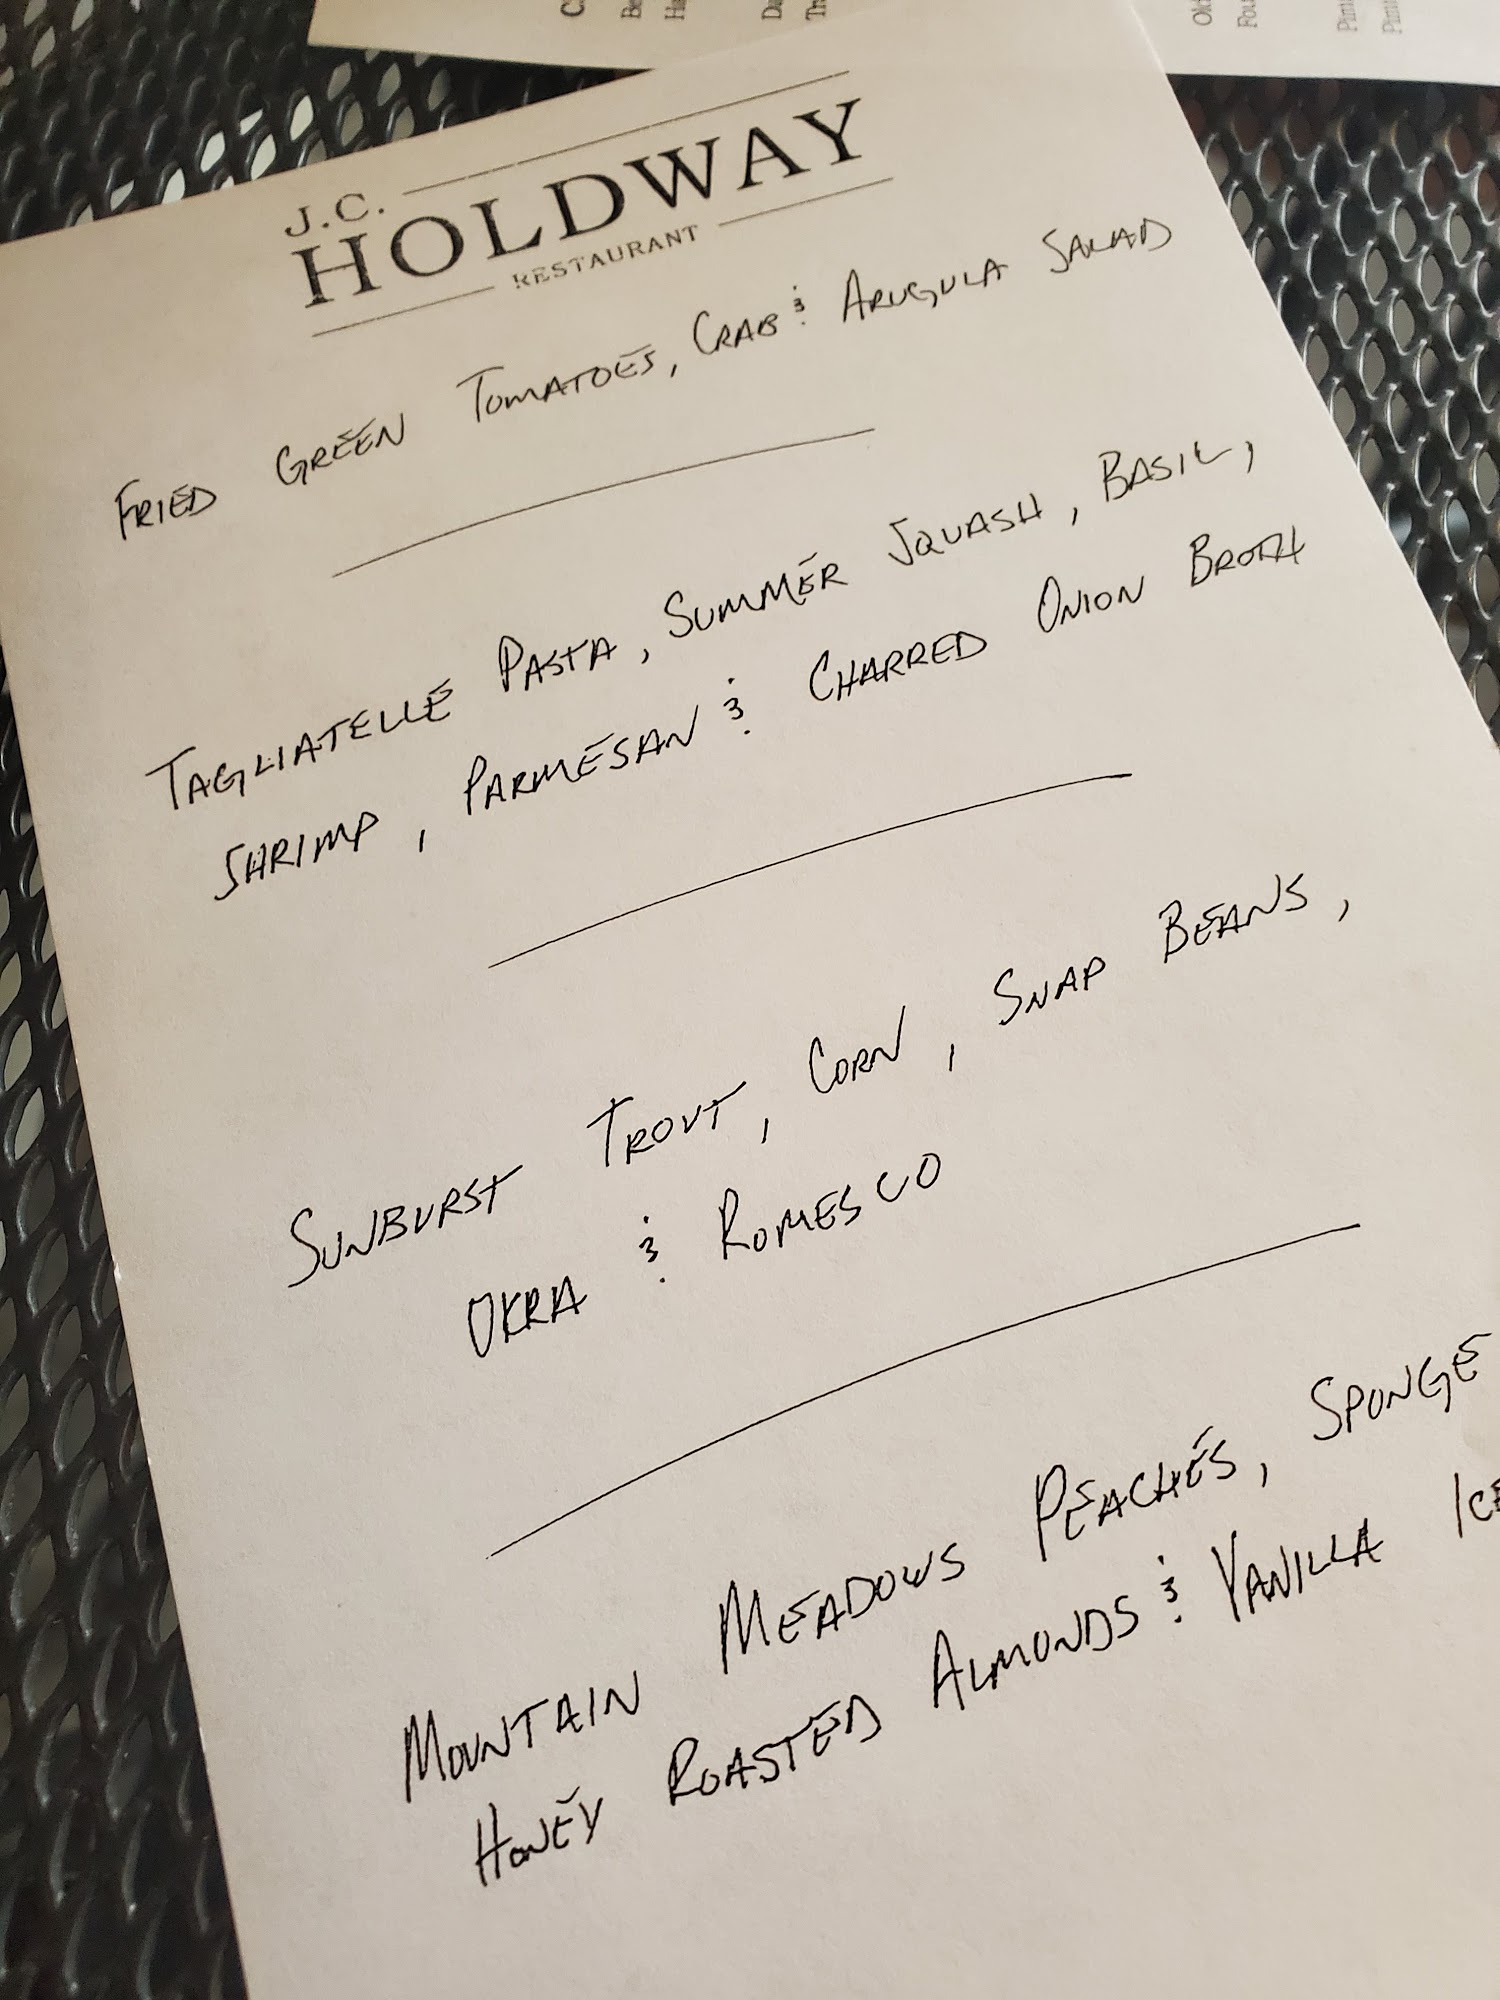 J.C.
HOLDWAY
RESTAURANT
FRIED GREEN TOMATOES, CRAB & ARUGULA SALAD
TAGLIATELLE PASTA, SUMMER SQUASH, BASIL,
SHRIMP, PARMESAN & CHARRED ONION BROTH
SUNBURST TROUT, CORN, SNAP BEANS,
OKRA & ROMESCO
MOUNTAIN MEADOWS PEACHES, SPONGE
HONEY ROASTED ALMONDS & VANILLA ICE